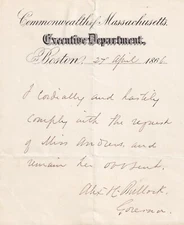 Commonwealth of Massachusetts.
Executive Department,
Boston, 27 April 1866
I cordially and hastily
comply with the request
of Miss and
remain her obt svt.
Alex H Bullock
Governor